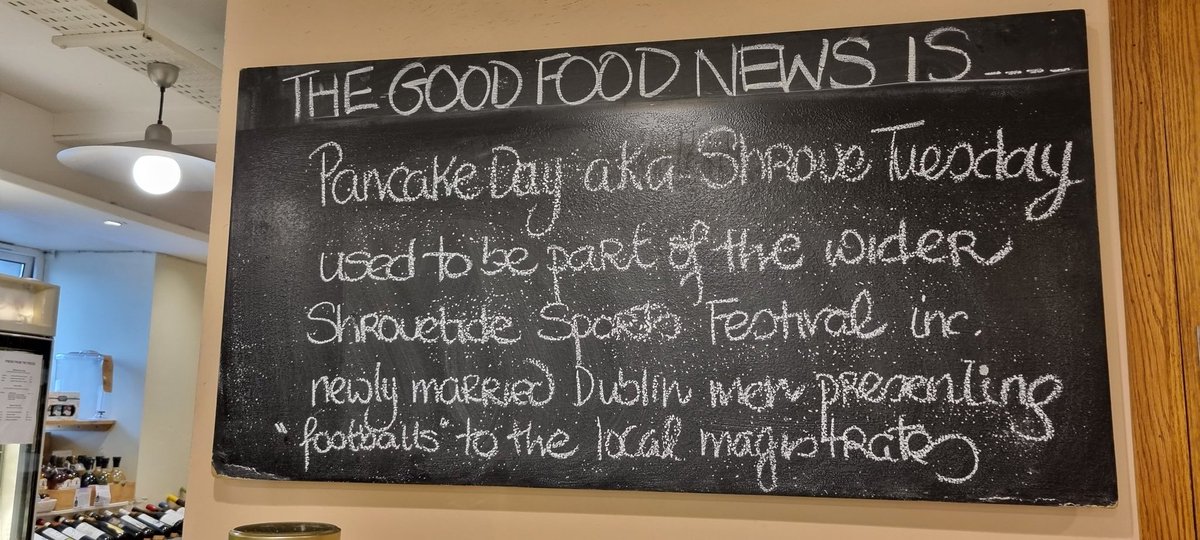 THE GOOD FOOD NEWS IS----
Pancake Day aka Shrove Tuesday
used to be part of the wider
Shrovetide Sports Festival inc.
newly married Dublin men presenting
"footballs" to the local magistrates